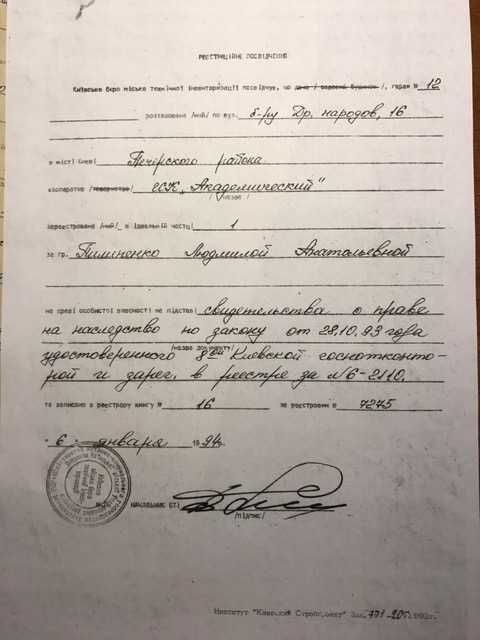 РЕЄСТРАЦІЙНЕ ПОСВІДЧЕННЯ
Київське бюро міське технічної інвентаризації посвідчує, що /, гараж № 12
розташоване /ний/ по вул. б-ру Др. народов, 16
в місті Києві Печерского района
кооператив /товариство/ "Академический"
/ назва /
зареєстроване /ний/ в ідеальній частці 1
за гр. Людмилой Анатольевной
на праві особистої власності на підставі свидетельства о праве
на наследство по закону от 28.10.93 года
/назва документу/
удостоверенного 8ой Киевской госнотконто-
рой и зарег. в реестре за №6-2110.
та записано в реєстрову книгу № 16 за реєстровим № 7275
"6" января 1994г.
НАЧАЛЬНИК БТІ
/підпис/
Институт "Киевский Стройпроект" Зак.